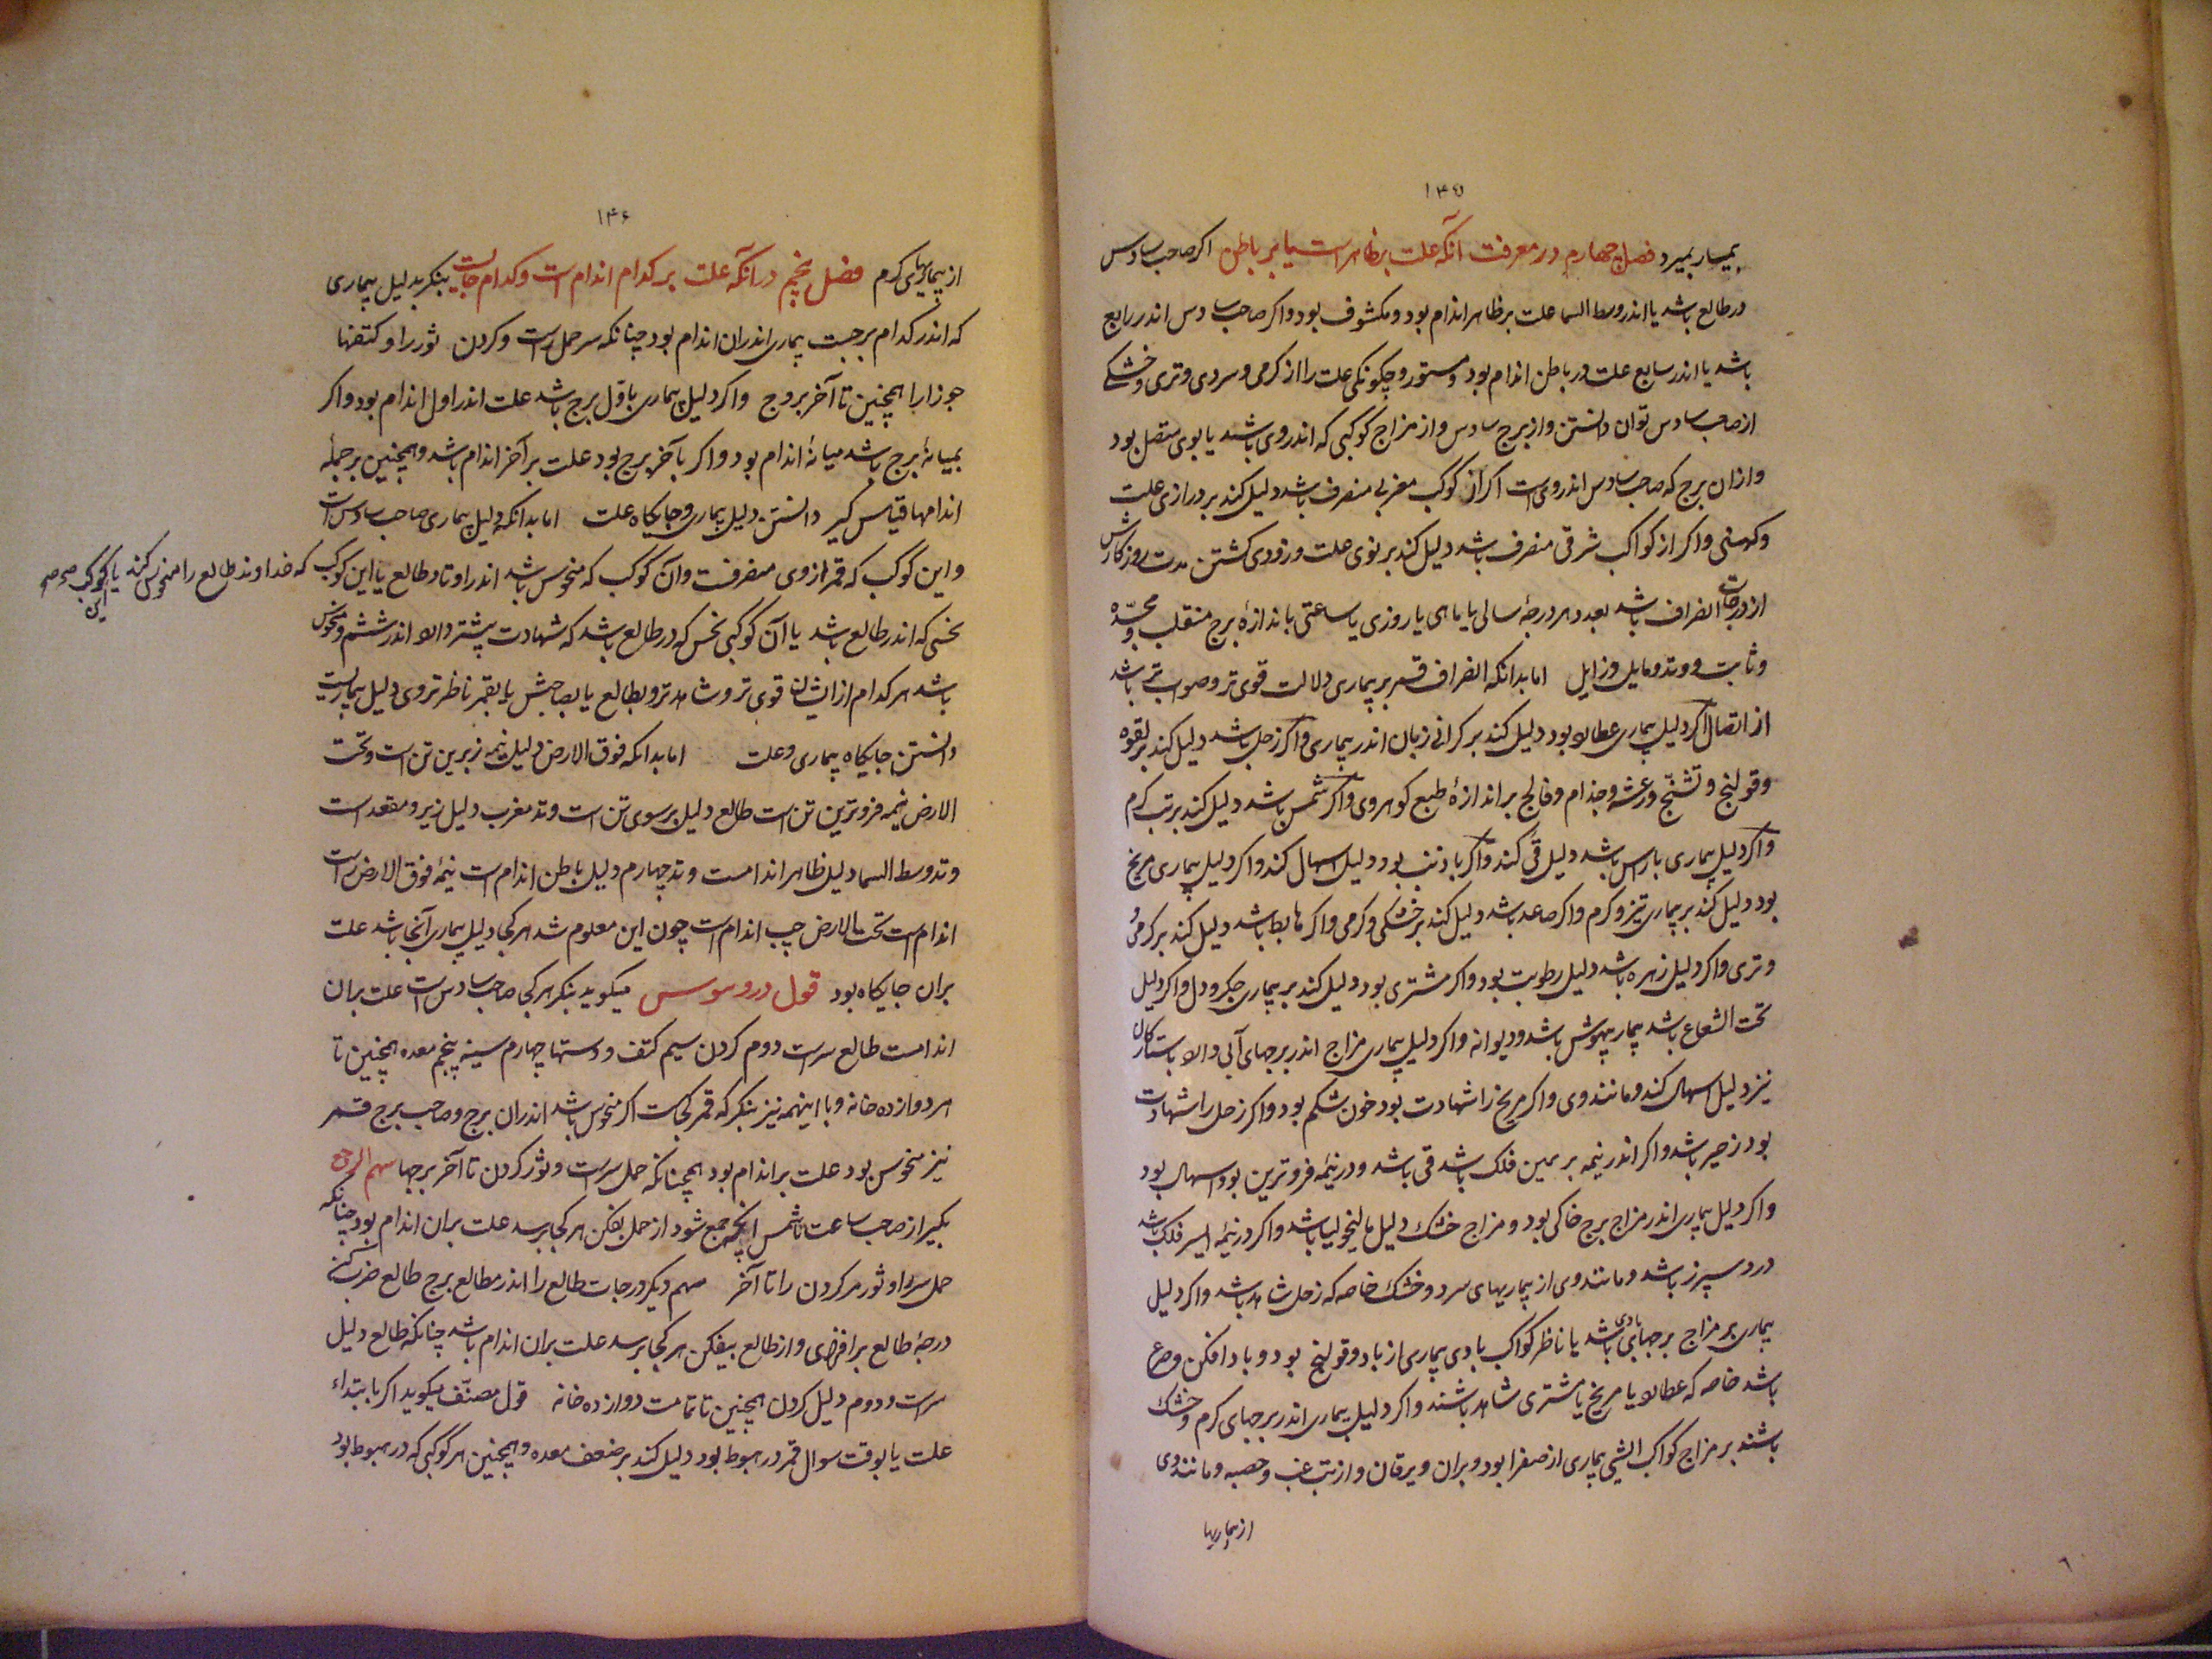 ۱۴۵
بیمار بمیرد فصل چهارم در معرفت آنکه علت بظاهر است یا بر باطن اکر صاحب سادس
در طالع باشد یا اندر وسط السما علت بر ظاهر اندام بود و مکشوف بود و اکر صاحب سادس اندر رابع
باشد یا اندر سابع علت در باطن اندام بود و مستور و چکونکی علت را از کرمی و سردی و تری و خشکی
از صاحب سادس توان دانستن و از برج سادس و از مزاج کوکبی که اندر وی باشد یا بوی متصل بود
و ازان برج که صاحب سادس اندر وی است اکر از کوکب مغربی منصرف باشد دلیل کند بر درازی علت
و کهنی و اکر از کواکب شرقی منصرف باشد دلیل کند بر نوی علت و زودی کشتن مدت روزکارش
از درجات انصراف باشد بعدد هر درجهٔ سالی یا ماهی یا روزی یا ساعتی باندازهٔ برج منقلب و مجسده
و ثابت و وتد و مایل و زایل اما بدانکه انصراف قمر بر بیماری دلالت قوی تر و صواب تر باشد
از اتصال اکر دلیل بیماری عطارد بود دلیل کند بر کرانی زبان اندر بیماری و اکر زحل باشد دلیل کند بر لقوه
و قولنج و تشنّج و رعشه و جذام و فالج بر اندازهٔ طبع کوهر وی و اکر شمس باشد دلیل کند بر تب کرم
و اکر دلیل بیماری با راس باشد دلیل قی کند و اکر با ذنب بود دلیل اسهال کند و اکر دلیل بیماری مریخ
بود دلیل کند بر بیماری تیز و کرم و اکر صاعد باشد دلیل کند بر خشکی و کرمی و اکر هابط باشد دلیل کند بر کرمی
و تری و اکر دلیل زهره باشد دلیل رطوبت بود و اکر مشتری بود دلیل کند بر بیماری جکر و دل و اکر دلیل
تحت الشعاع باشد بیمار بیهوش باشد و دیوانه و اکر دلیل بیماری مزاج اندر برجهای آبی دارد با ستارکان
نیز دلیل اسهال کند و مانند وی و اکر مریخ را شهادت بود خون شکم بود و اکر زحل را شهادت
بود زحیر باشد و اکر اندر نیمه بر یمین فلک باشد قی باشد و در نیمهٔ فروترین بود اسهال بود
و اکر دلیل بیماری اندر مزاج برج خاکی بود و مزاج خشک دلیل مالیخولیا باشد و اکر در نیمهٔ ایسر فلک باشد
درد سپرز باشد و مانند وی از بیماریهای سرد و خشک خاصه که زحل شاهد باشد و اکر دلیل
بیماری بر مزاج برجهای بادی باشد یا ناظر کواکب بادی بیماری از باد و قولنج بود و باد افکن و صرع
باشد خاصه که عطارد یا مریخ یا مشتری شاهد باشند و اکر دلیل بیماری اندر برجهای کرم و خشک
باشند بر مزاج کواکب آتشی بیماری از صفرا بود و بران و یرقان و از تب غب و حصبه و مانند وی
از بیماریها
۱۴۶
از بیماریهای کرم فصل پنجم در آنکه علت بر کدام اندام است و کدام جایست بنکر بدلیل بیماری
که اندر کدام برجست بیماری اندران اندام بود چنانکه سر حمل راست و کردن ثور را و کتفها
جوزا را همچنین تا آخر بروج و اکر دلیل بیماری باوّل برج باشد علت اندر اول اندام بود و اکر
بمیانهٔ برج باشد میانهٔ اندام بود و اکر بآخر برج بود علت بر آخر اندام باشد و همچنین بر جملهٔ
اندامها قیاس کیر دانستن دلیل بیماری و جایکاه علت اما بدانکه دلیل بیماری صاحب سادس است
و این کوکب که قمر از وی منصرفست و آن کوکب که منحوس باشد اندر اوتاد طالع یا این کوکب که خداوند طالع را منحوس کند یا این کوکب صح
نحسی که اندر طالع باشد یا آن کوکبی نحس که در طالع باشد که شهادت بیشتر دارد اندر ششم و منحوس
باشد هر کدام از ایشان قوی تر و شاهد تر و بطالع یا بصاحبش یا بقمر ناظر تر وی دلیل بیماریست
دانستن جایکاه بیماری و علت اما بدانکه فوق الارض دلیل نیمه زبرین تن است و تحت
الارض نیمه فروترین تن است طالع دلیل بر سوی تن است وتد مغرب دلیل زیر و مقعد است
وتد وسط السما دلیل ظاهر اندامست وتد چهارم دلیل باطن اندام است نیمهٔ فوق الارض راست
اندام است تحت الارض چپ اندام است چون این معلوم شد هر کجا دلیل بیماری آنجا باشد علت
بران جایکاه بود قول دروسوس میکوید بنکر هر کجا صاحب سادس است علت بران
اندامست طالع سرست دوم کردن سیم کتف و دستها چهارم سینه پنجم معده همچنین تا
هر دوازده خانه و با اینهمه نیز بنکر که قمر کجاست اکر منحوس باشد اندران برج و صاحب برج قمر
نیز منحوس بود علت بر اندام بود همچنانکه حمل سرست و ثور کردن تا آخر برجها سهم الوجع
بکیر از صاحب ساعت تا شمس آنچه جمع شود از حمل بفکن هر کجا برسد علت بران اندام بود چنانکه
حمل سر را و ثور مر کردن را تا آخر سهم دیکر درجات طالع را اندر مطالع برج طالع ضرب کن
درجهٔ طالع بر افزای و از طالع بیفکن هر کجا برسد علت بران اندام باشد چنانکه طالع دلیل
سرست و دوم دلیل کردن همچنین تا تمامت دوازده خانه قول مصنّف میکوید اکر بابتداء
علت یا بوقت سوال قمر در هبوط بود دلیل کند بر ضعف معده و همچنین هر کوکبی که در هبوط بود